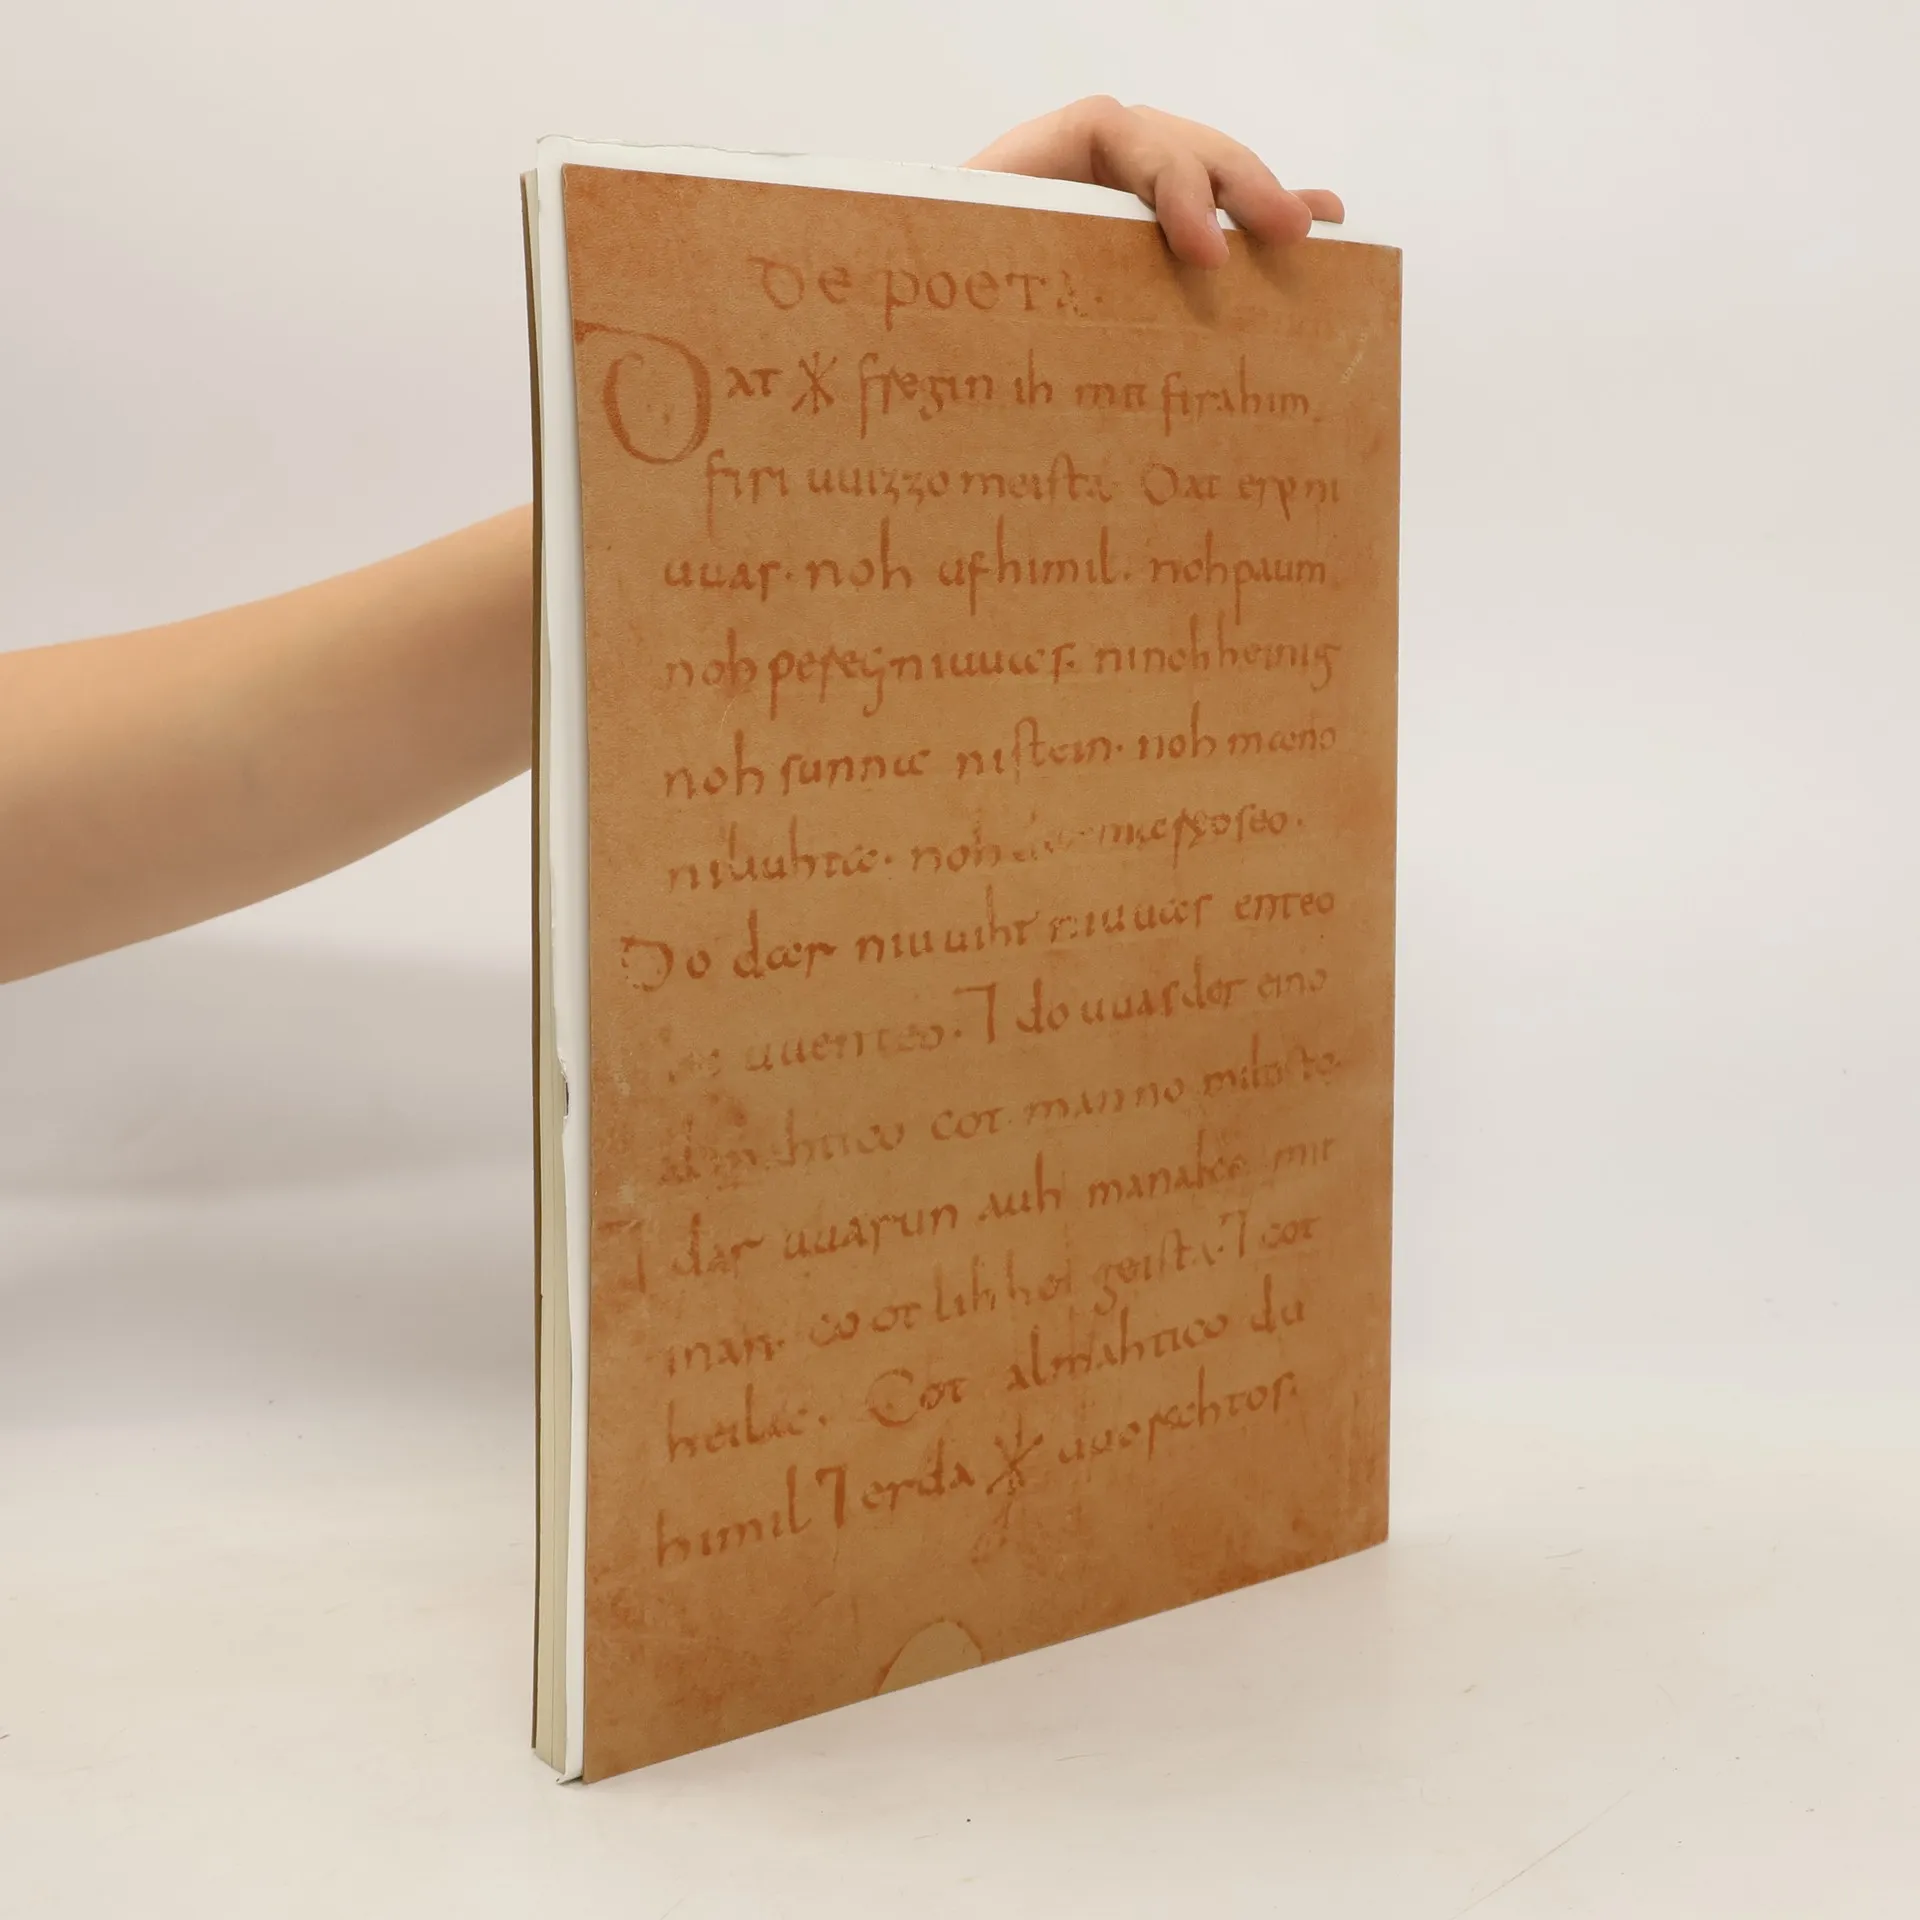 De poeta.
Dat ᚼ fregin ih mit firahim
firi uuizzo meista. Dat ero ni
uuas. noh ufhimil. noh paum
noh pereg ni uuæs. ninohheinig
noh sunnæ nistein. noh mæno
niliuhtæ. noh der mæræo seo.
Do dær niuuiht niuuæs enteo
ni uuenteo. ⁊ do uuas der eino
almahtico cot manno miltisto.
⁊ dar uuarun auh manake mit
inan. cootlihhe geista. ⁊ cot
heilac. Cot almahtico du
himil ⁊ erda ᚼ uuorahtos.